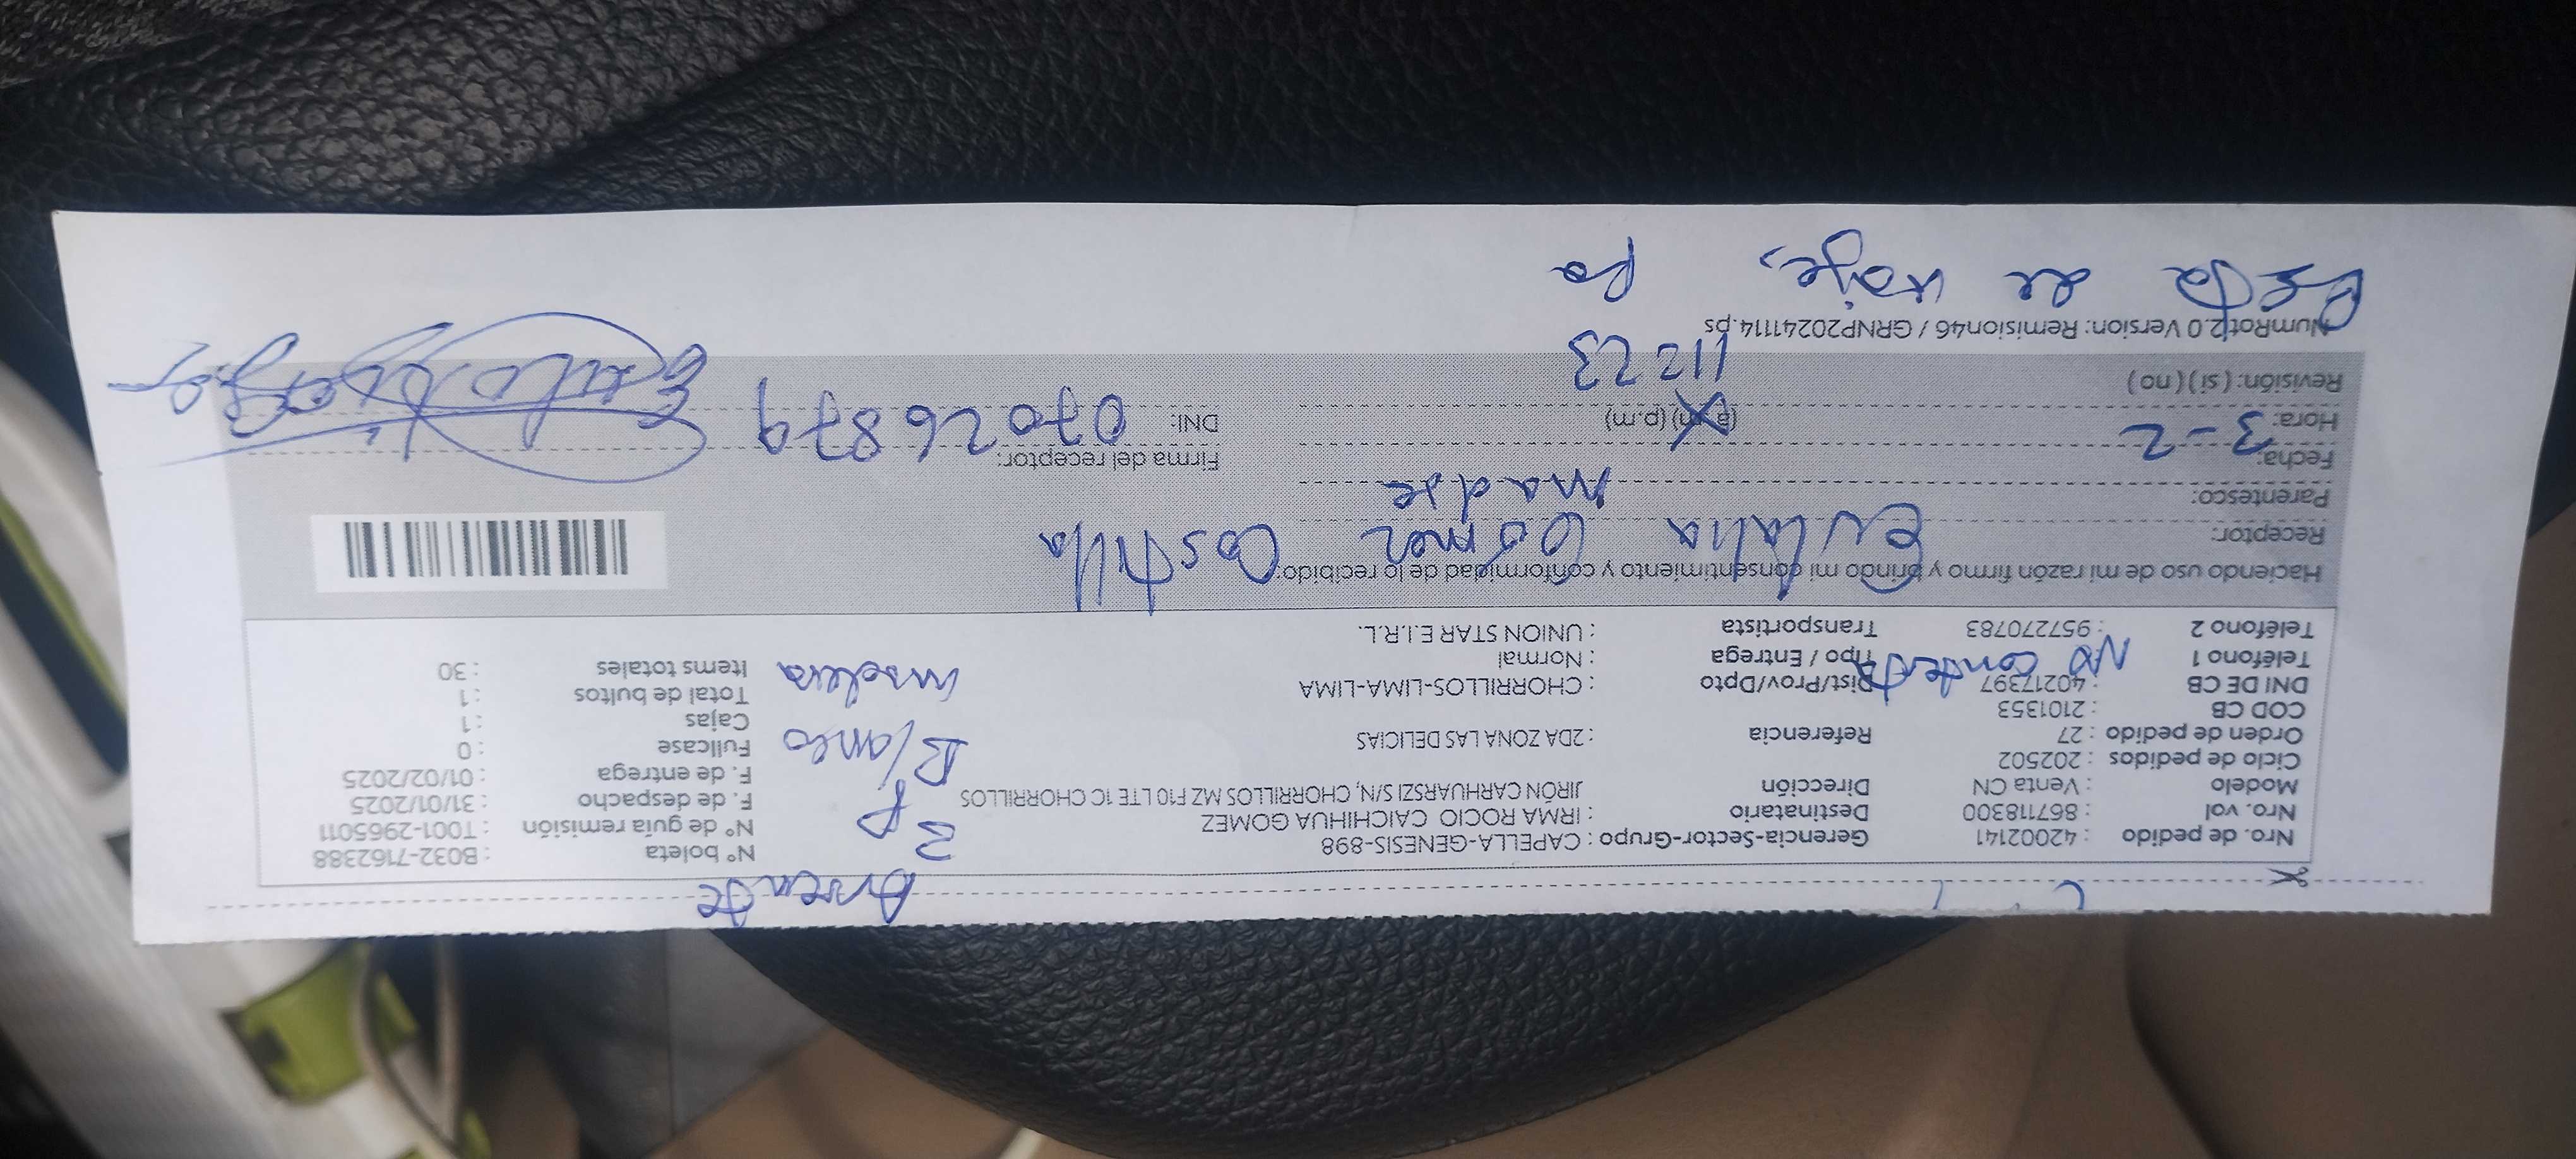 Avenate
Nro. de pedido : 42002141 Gerencia-Sector-Grupo : CAPELLA-GENESIS-898 N° boleta : B032-7162388
Nro. vol : 867118300 Destinatario : IRMA ROCIO CAICHIHUA GOMEZ 3 P N° de guía remisión : T001-2965011
Modelo : Venta CN Dirección JIRÓN CARHUARSZI S/N, CHORRILLOS MZ F10 LTE 1C CHORRILLOS F. de despacho : 31/01/2025
Ciclo de pedidos : 202502 F. de entrega : 01/02/2025
Orden de pedido : 27 Referencia : 2DA ZONA LAS DELICIAS Blanco Fullcase : 0
COD CB : 2101353 Cajas : 1
DNI DE CB : 40217397 Dist/Prov/Dpto : CHORRILLOS-LIMA-LIMA madera Total de bultos : 1
Teléfono 1 No contesta Tipo / Entrega : Normal Items totales : 30
Teléfono 2 : 957270783 Transportista : UNION STAR E.I.R.L.
Haciendo uso de mi razón firmo y brindo mi consentimiento y conformidad de lo recibido:
Receptor: Eulalia Gómez Costilla
Parentesco: madre
Fecha: 3-2 Firma del receptor:
Hora: (a.m) (p.m) DNI: 07026879
Revisión: ( si ) ( no ) 11:23
NumRot2.0 Version: Remision46 / GRNP20241114.ps
Esta de viaje,